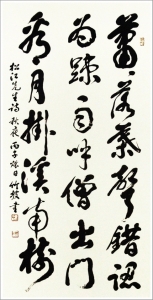 蕭々落葉聲錯認
為踈雨呼僧出門
看月掛溪南樹
松江先生詩秋夜丙子日竹書